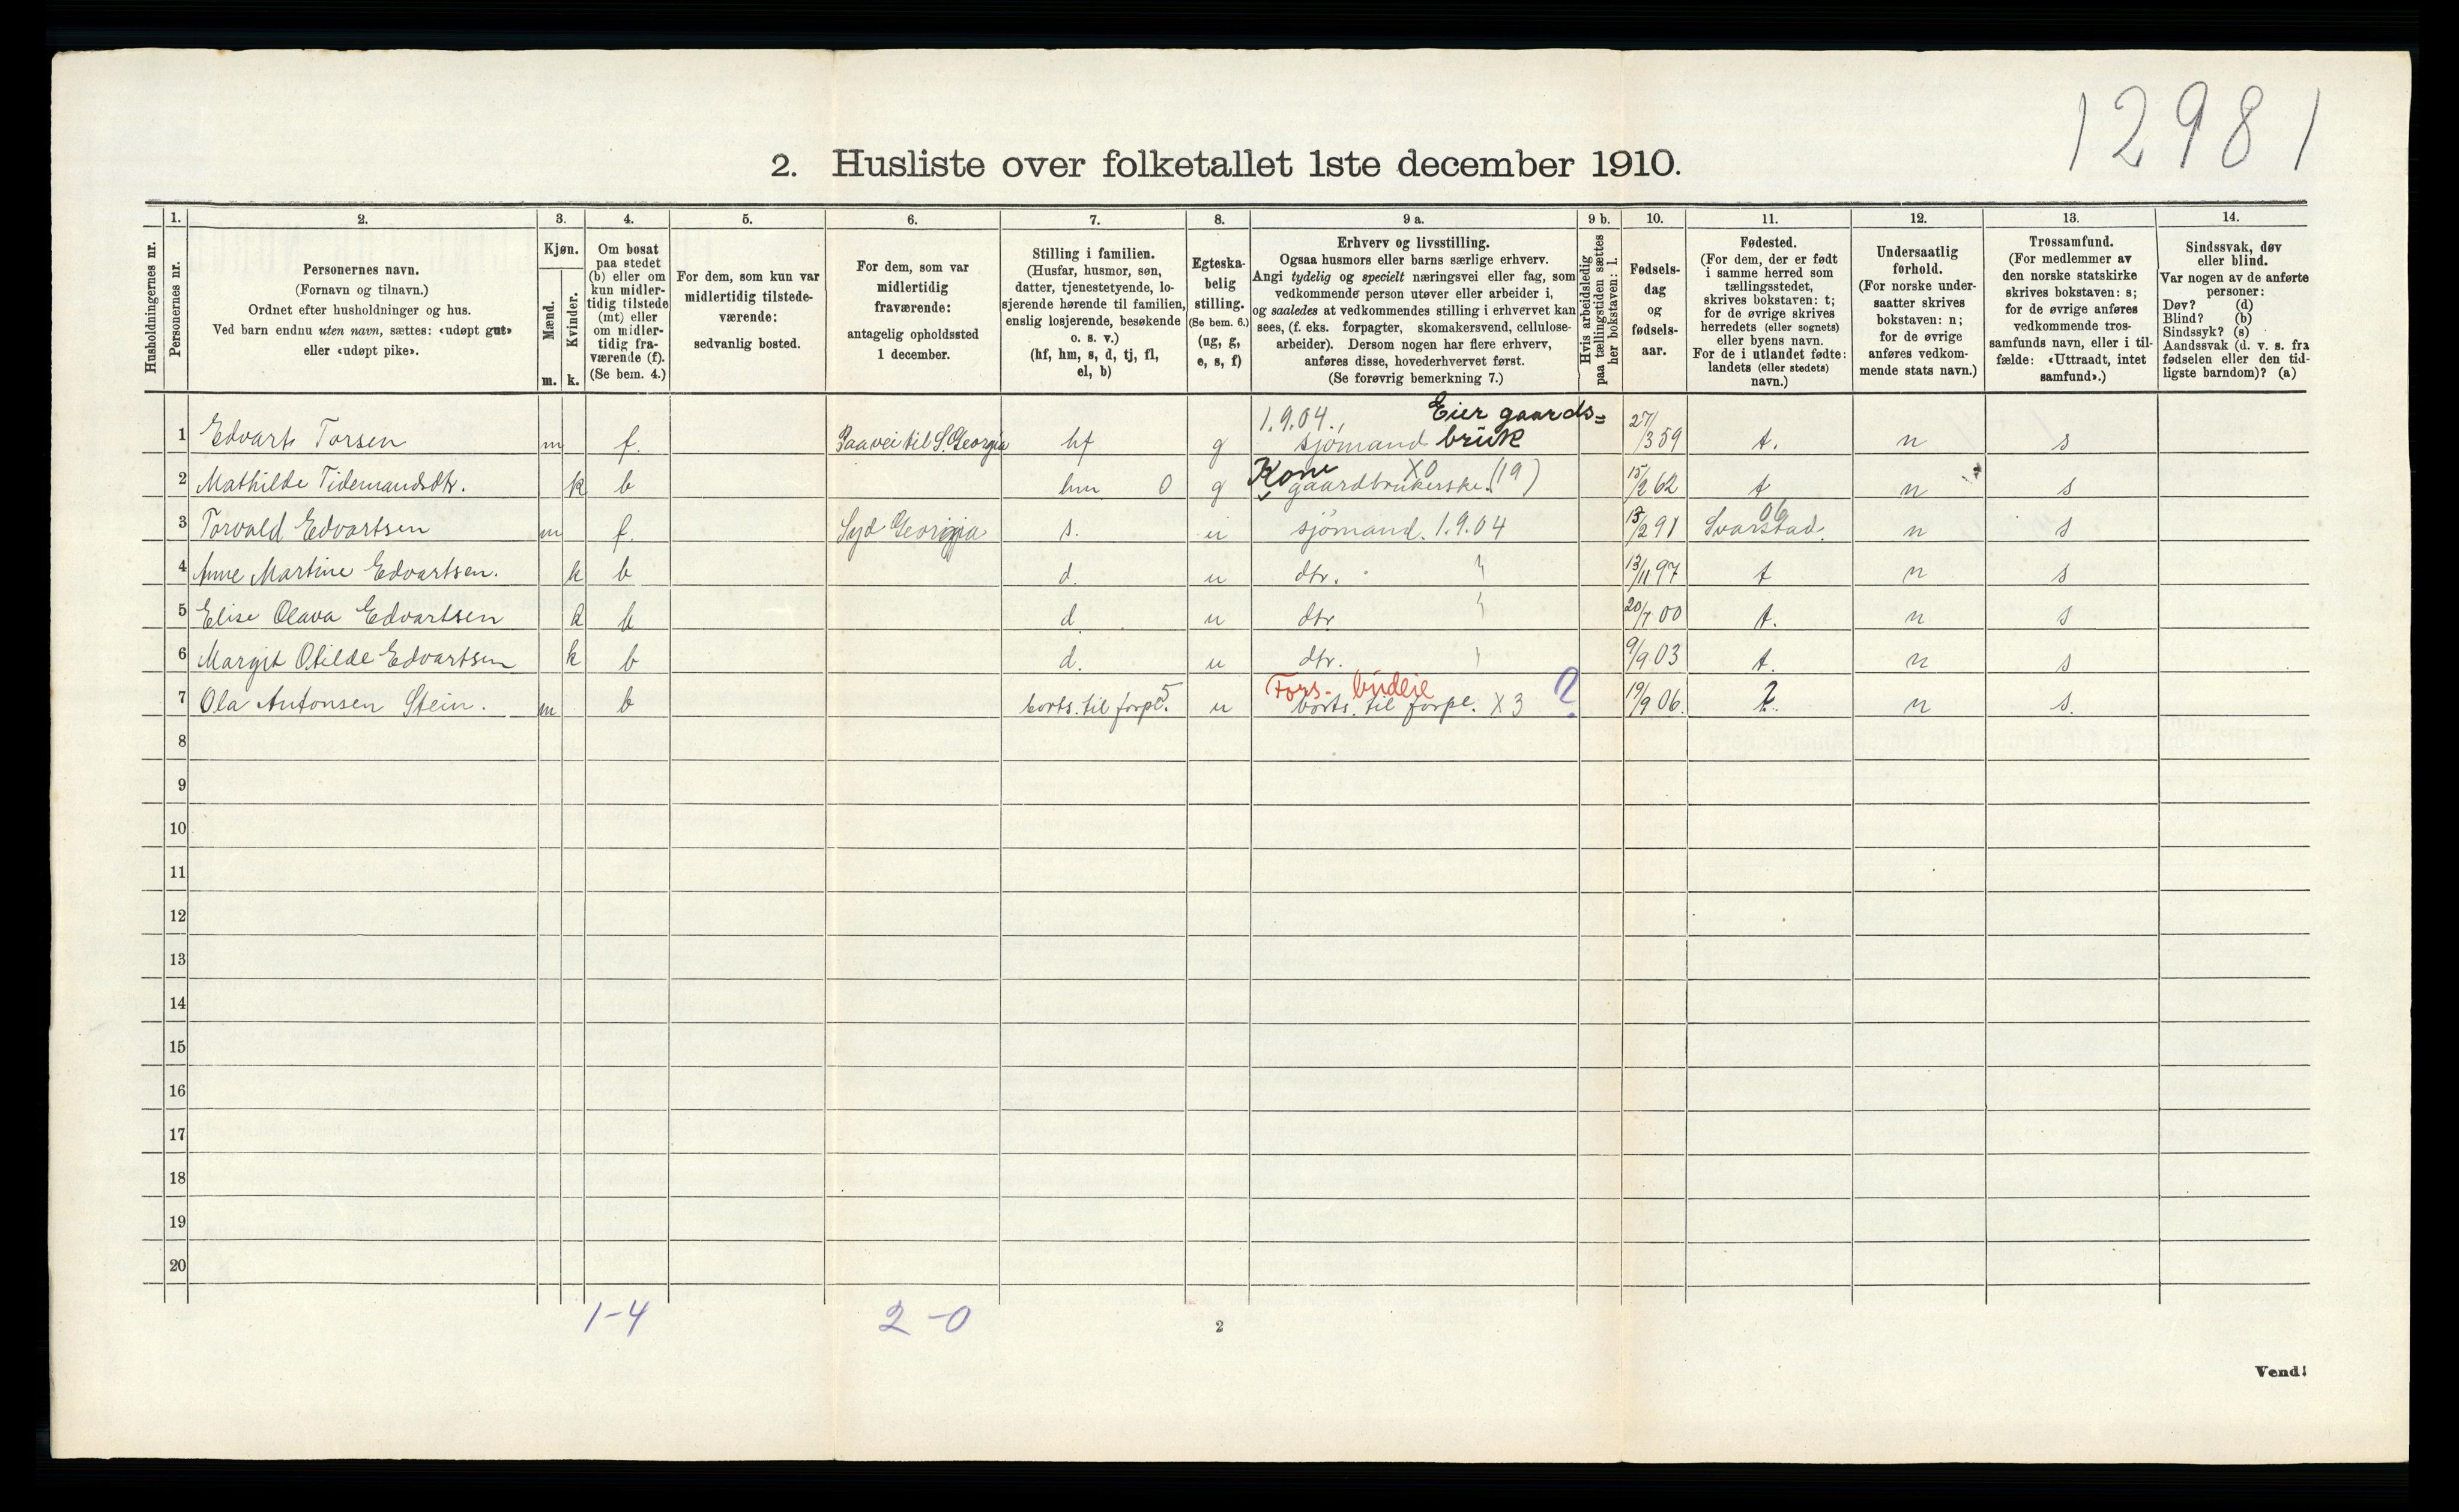 12981
2. Husliste over folketallet 1ste december 1910.
Husholdningernes nr.
1.
Personernes nr.
2.
Personernes navn.
(Fornavn og tilnavn.)
Ordnet efter husholdninger og hus.
Ved barn endnu uten navn, sættes: «udøpt gut»
eller «udøpt pike».
3.
Kjøn.
Mænd.
Kvinder.
m. k.
4.
Om bosat
paa stedet
(b) eller om
kun midler-
tidig tilstede
(mt) eller
om midler-
tidig fra-
værende (f).
(Se bem. 4.)
5.
For dem, som kun var
midlertidig tilstede-
værende:
sedvanlig bosted.
6.
For dem, som var
midlertidig
fraværende:
antagelig opholdssted
1 december.
7.
Stilling i familien.
(Husfar, husmor, søn,
datter, tjenestetyende, lo-
sjerende hørende til familien,
enslig losjerende, besøkende
o. s. v.)
(hf, hm, s, d, tj, fl,
el, b)
8.
Egteska-
belig
stilling.
(Se bem. 6.)
(ug, g,
e, s, f)
9 a.
Erhverv og livsstilling.
Ogsaa husmors eller barns særlige erhverv.
Angi tydelig og specielt næringsvei eller fag, som
vedkommende person utøver eller arbeider i,
og saaledes at vedkommendes stilling i erhvervet kan
sees, (f. eks. forpagter, skomakersvend, cellulose-
arbeider). Dersom nogen har flere erhverv,
anføres disse, hovederhvervet først.
(Se forøvrig bemerkning 7.)
9 b.
Hvis arbeidsledig
paa tællingstiden sættes
her bokstaven: l.
10.
Fødsels-
dag
og
fødsels-
aar.
11.
Fødested.
(For dem, der er født
i samme herred som
tællingsstedet,
skrives bokstaven: t;
for de øvrige skrives
herredets (eller sognets)
eller byens navn.
For de i utlandet fødte:
landets (eller stedets)
navn.)
12.
Undersaatlig
forhold.
(For norske under-
saatter skrives
bokstaven: n;
for de øvrige
anføres vedkom-
mende stats navn.)
13.
Trossamfund.
(For medlemmer av
den norske statskirke
skrives bokstaven: s;
for de øvrige anføres
vedkommende tros-
samfunds navn, eller i til-
fælde: «Uttraadt, intet
samfund».)
14.
Sindssvak, døv
eller blind.
Var nogen av de anførte
personer:
Døv? (d)
Blind? (b)
Sindssyk? (s)
Aandssvak (d. v. s. fra
fødselen eller den tid-
ligste barndom)? (a)
1.9.04., Eier gaards=
1 Edvart Torsen m f. Paa vei til S. Georgia hf g sjømand bruk 27/3 59 t. n s
2 Mathilde Tidemandsdtr. k b hm 0 g Kone gaardbrukerske. X0 (19) 15/2 62 t n s
3 Torvald Edvartsen m f. Syd Georgia s. u sjömand. 1.9.04 13/2 91 Svarstad. 06 n s
4 Anne Martine Edvartsen. k b d. u dtr. 13/11 97 t n s
5 Elise Olava Edvartsen k b d u dtr 20/7 00 t. n s
6 Margit Otilde Edvartsen k b d. u dtr. 9/9 03 t. n s
Fors- budeie
7 Ola Antonsen Stein. m b borts. til forpl. 5 u borts. til forpl. X 3 ? 19/9 06. n s.
8
9
10
11
12
13
14
15
16
17
18
19
20
1-4 2-0
2
Vend!